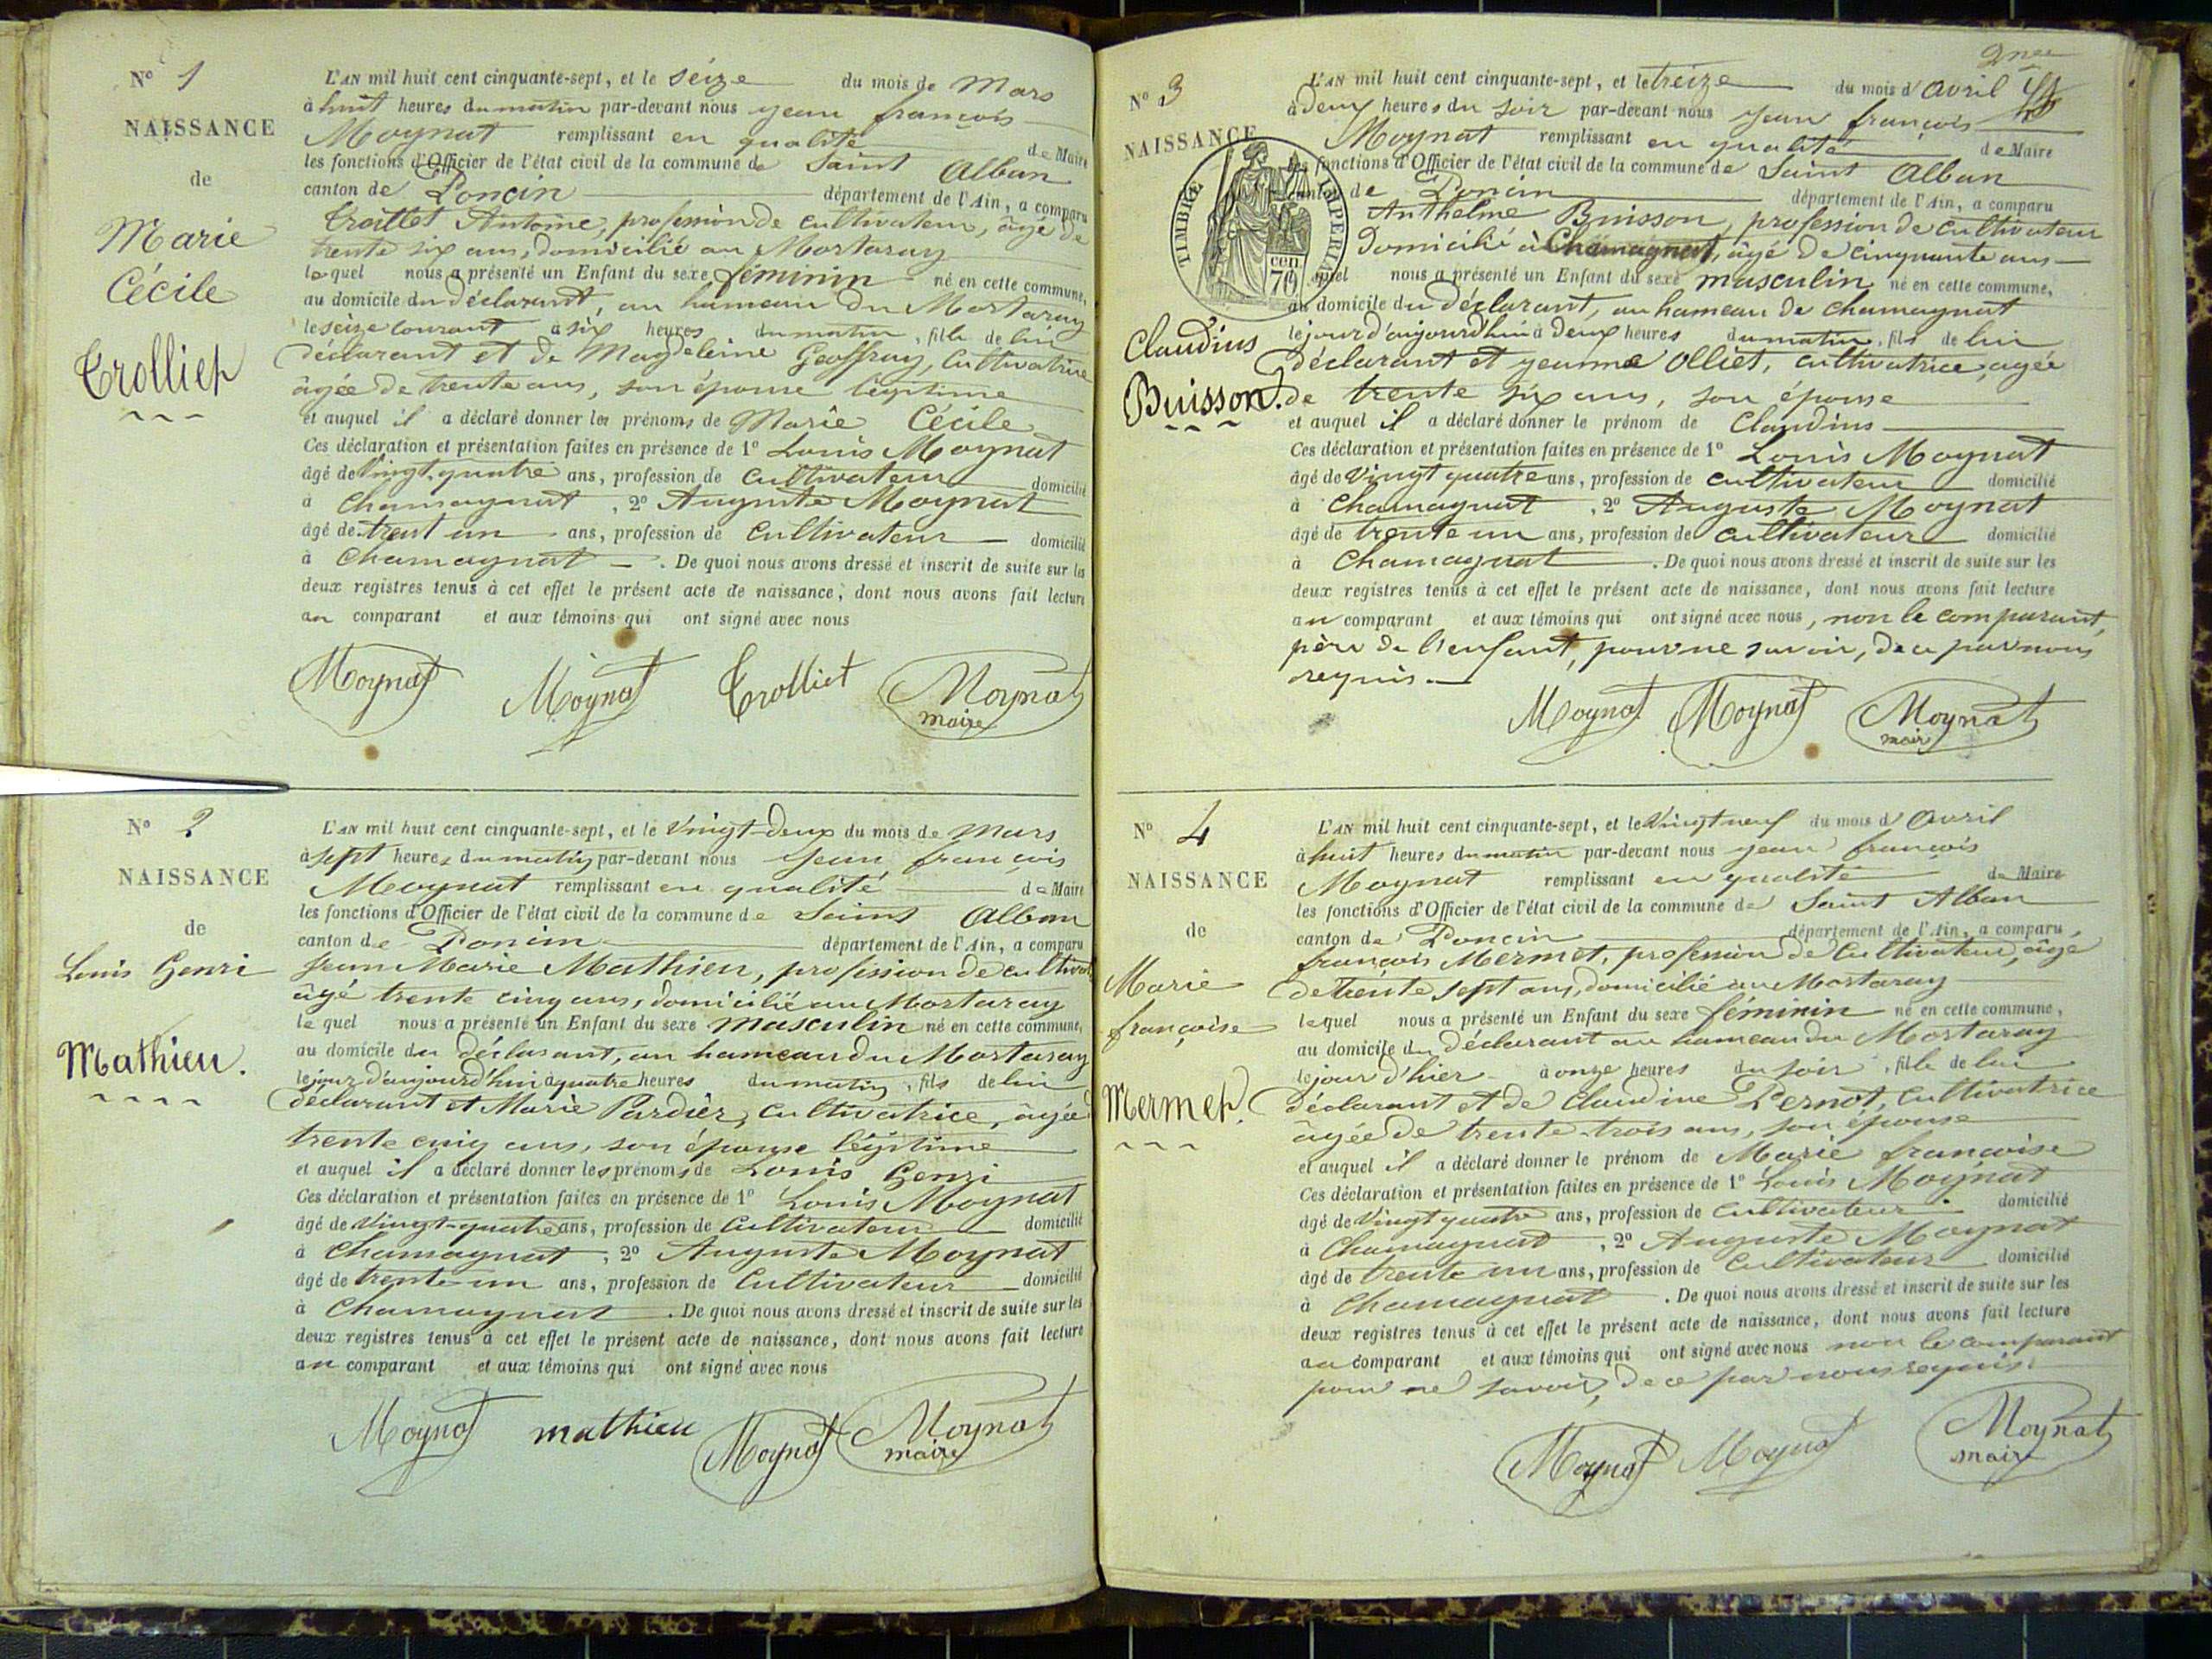 N° 1
NAISSANCE
de
Marie
Cécile
Trolliet
L'AN mil huit cent cinquante-sept, et le seize du mois de Mars
à huit heures du matin par-devant nous jean françois
Moynat remplissant en qualité de Maire
les fonctions d'Officier de l'état civil de la commune de Saint Alban
canton de Poncin département de l'Ain, a comparu
Trolliet Antoine, profession de cultivateur, âgé de
trente six ans, domicilié au Mortaray
lequel nous a présenté un Enfant du sexe féminin né en cette commune,
au domicile du déclarant, au hameau du Mortaray
le seize courant à six heures du matin, fille de lui
déclarant et de Magdeleine Geoffray, Cultivatrice
âgée de trente ans, son épouse légitime
et auquel il a déclaré donner les prénoms de Marie Cécile
Ces déclaration et présentation faites en présence de 1° Louis Moynat
âgé de Vingt quatre ans, profession de Cultivateur domicilié
à Chamagnat, 2° Auguste Moynat
âgé de trent un ans, profession de Cultivateur domicilié
à Chamagnat. De quoi nous avons dressé et inscrit de suite sur les
deux registres tenus à cet effet le présent acte de naissance, dont nous avons fait lecture
au comparant et aux témoins qui ont signé avec nous
Moynat Moynat Trolliet Moynat
maire
N° 2
NAISSANCE
de
Louis Henri
Mathieu.
L'AN mil huit cent cinquante-sept, et le Vingt-deux du mois de Mars
à sept heures du matin par-devant nous jean françois
Moynat remplissant en qualité de Maire
les fonctions d'Officier de l'état civil de la commune de Saint Alban
canton de Poncin département de l'Ain, a comparu
Jean Marie Mathieu, profession de cultivat
âgé trente cinq ans, domicilié au Mortaray
lequel nous a présenté un Enfant du sexe masculin né en cette commune,
au domicile du déclarant, au hameau du Mortaray
le jour d'aujourd'hui à quatre heures du matin, fils de lui
déclarant et Marie Pardier, Cultivatrice, âgée
trente cinq ans, son épouse légitime
et auquel il a déclaré donner les prénoms de Louis Henri
Ces déclaration et présentation faites en présence de 1° Louis Moynat
âgé de Vingt-quatre ans, profession de Cultivateur domicilié
à Chamagnat, 2° Auguste Moynat
âgé de trente-un ans, profession de Cultivateur domicilié
à Chamagnat. De quoi nous avons dressé et inscrit de suite sur les
deux registres tenus à cet effet le présent acte de naissance, dont nous avons fait lecture
au comparant et aux témoins qui ont signé avec nous
Moynat mathieu Moynat Moynat
maire
N° 3
NAISSANCE
TIMBRE IMPERIAL
70 cen
Claudius
Buisson.
L'AN mil huit cent cinquante-sept, et le treize du mois d'avril
à deux heures du soir par-devant nous jean françois
Moynat remplissant en qualité de Maire
les fonctions d'Officier de l'état civil de la commune de Saint Alban
canton de Poncin département de l'Ain, a comparu
Anthelme Buisson, profession de cultivateur
Domicilié à Chamagnat, âgé de cinquante ans
lequel nous a présenté un Enfant du sexe masculin né en cette commune,
au domicile du déclarant, au hameau de chamagnat
le jour d'aujourd'hui à deux heures du matin, fils de lui
déclarant et jeanne Olliet, cultivatrice, agée
de trente six ans, son épouse
et auquel il a déclaré donner le prénom de Claudius
Ces déclaration et présentation faites en présence de 1° Louis Moynat
âgé de Vingt quatre ans, profession de cultivateur domicilié
à Chamagnat, 2° Auguste Moynat
âgé de trente un ans, profession de cultivateur domicilié
à Chamagnat. De quoi nous avons dressé et inscrit de suite sur les
deux registres tenus à cet effet le présent acte de naissance, dont nous avons fait lecture
au comparant et aux témoins qui ont signé avec nous, non le comparant,
père de l'enfant, pour ne savoir, de ce par nous
requis.
Moynat Moynat Moynat
maire
N° 4
NAISSANCE
de
Marie
françoise
Mermet.
L'AN mil huit cent cinquante-sept, et le Vingt neuf du mois d'Avril
à huit heures du matin par-devant nous jean françois
Moynat remplissant en qualité de Maire
les fonctions d'Officier de l'état civil de la commune de Saint Alban
canton de Poncin département de l'Ain, a comparu,
françois Mermet, profession de Cultivateur, âgé
de trente sept ans, domicilié au Mortaray
lequel nous a présenté un Enfant du sexe féminin né en cette commune,
au domicile du Déclarant au hameau du Mortaray
le jour d'hier à onze heures du soir, fille de lui
déclarant et de Claudine Pernot, Cultivatrice
âgée de trente-trois ans, son épouse
et auquel il a déclaré donner le prénom de Marie francoise
Ces déclaration et présentation faites en présence de 1° Louis Moynat
âgé de Vingt quatre ans, profession de Cultivateur domicilié
à Chamagnat, 2° Auguste Moynat
âgé de trente un ans, profession de Cultivateur domicilié
à Chamagnat. De quoi nous avons dressé et inscrit de suite sur les
deux registres tenus à cet effet le présent acte de naissance, dont nous avons fait lecture
au comparant et aux témoins qui ont signé avec nous non le comparant
pour ne savoir, de ce par nous requis.
Moynat Moynat Moynat
maire